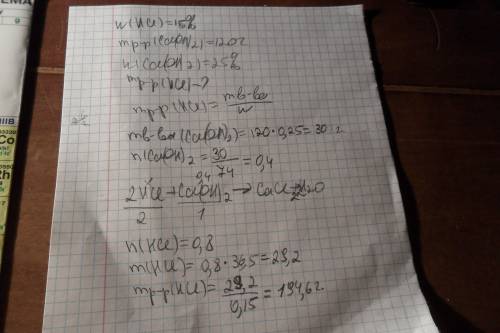 w(HCl)=15%
mp-p(Ca(OH)2)=120г
w(Ca(OH)2)=25%
mp-p(HCl)-?
mp-p(HCl)= mв-ва / w
mв-ва(Ca(OH)2)=120·0,25=30 г
n(Ca(OH)2=30/74=0,4
0,4
2HCl+Ca(OH)2→CaCl2+H2O
2 1
n(HCl)=0,8
m(HCl)=0,8·36,5=29,2
mp-p(HCl)=29,2/0,15=194,6г
IIIB
Co
Rh